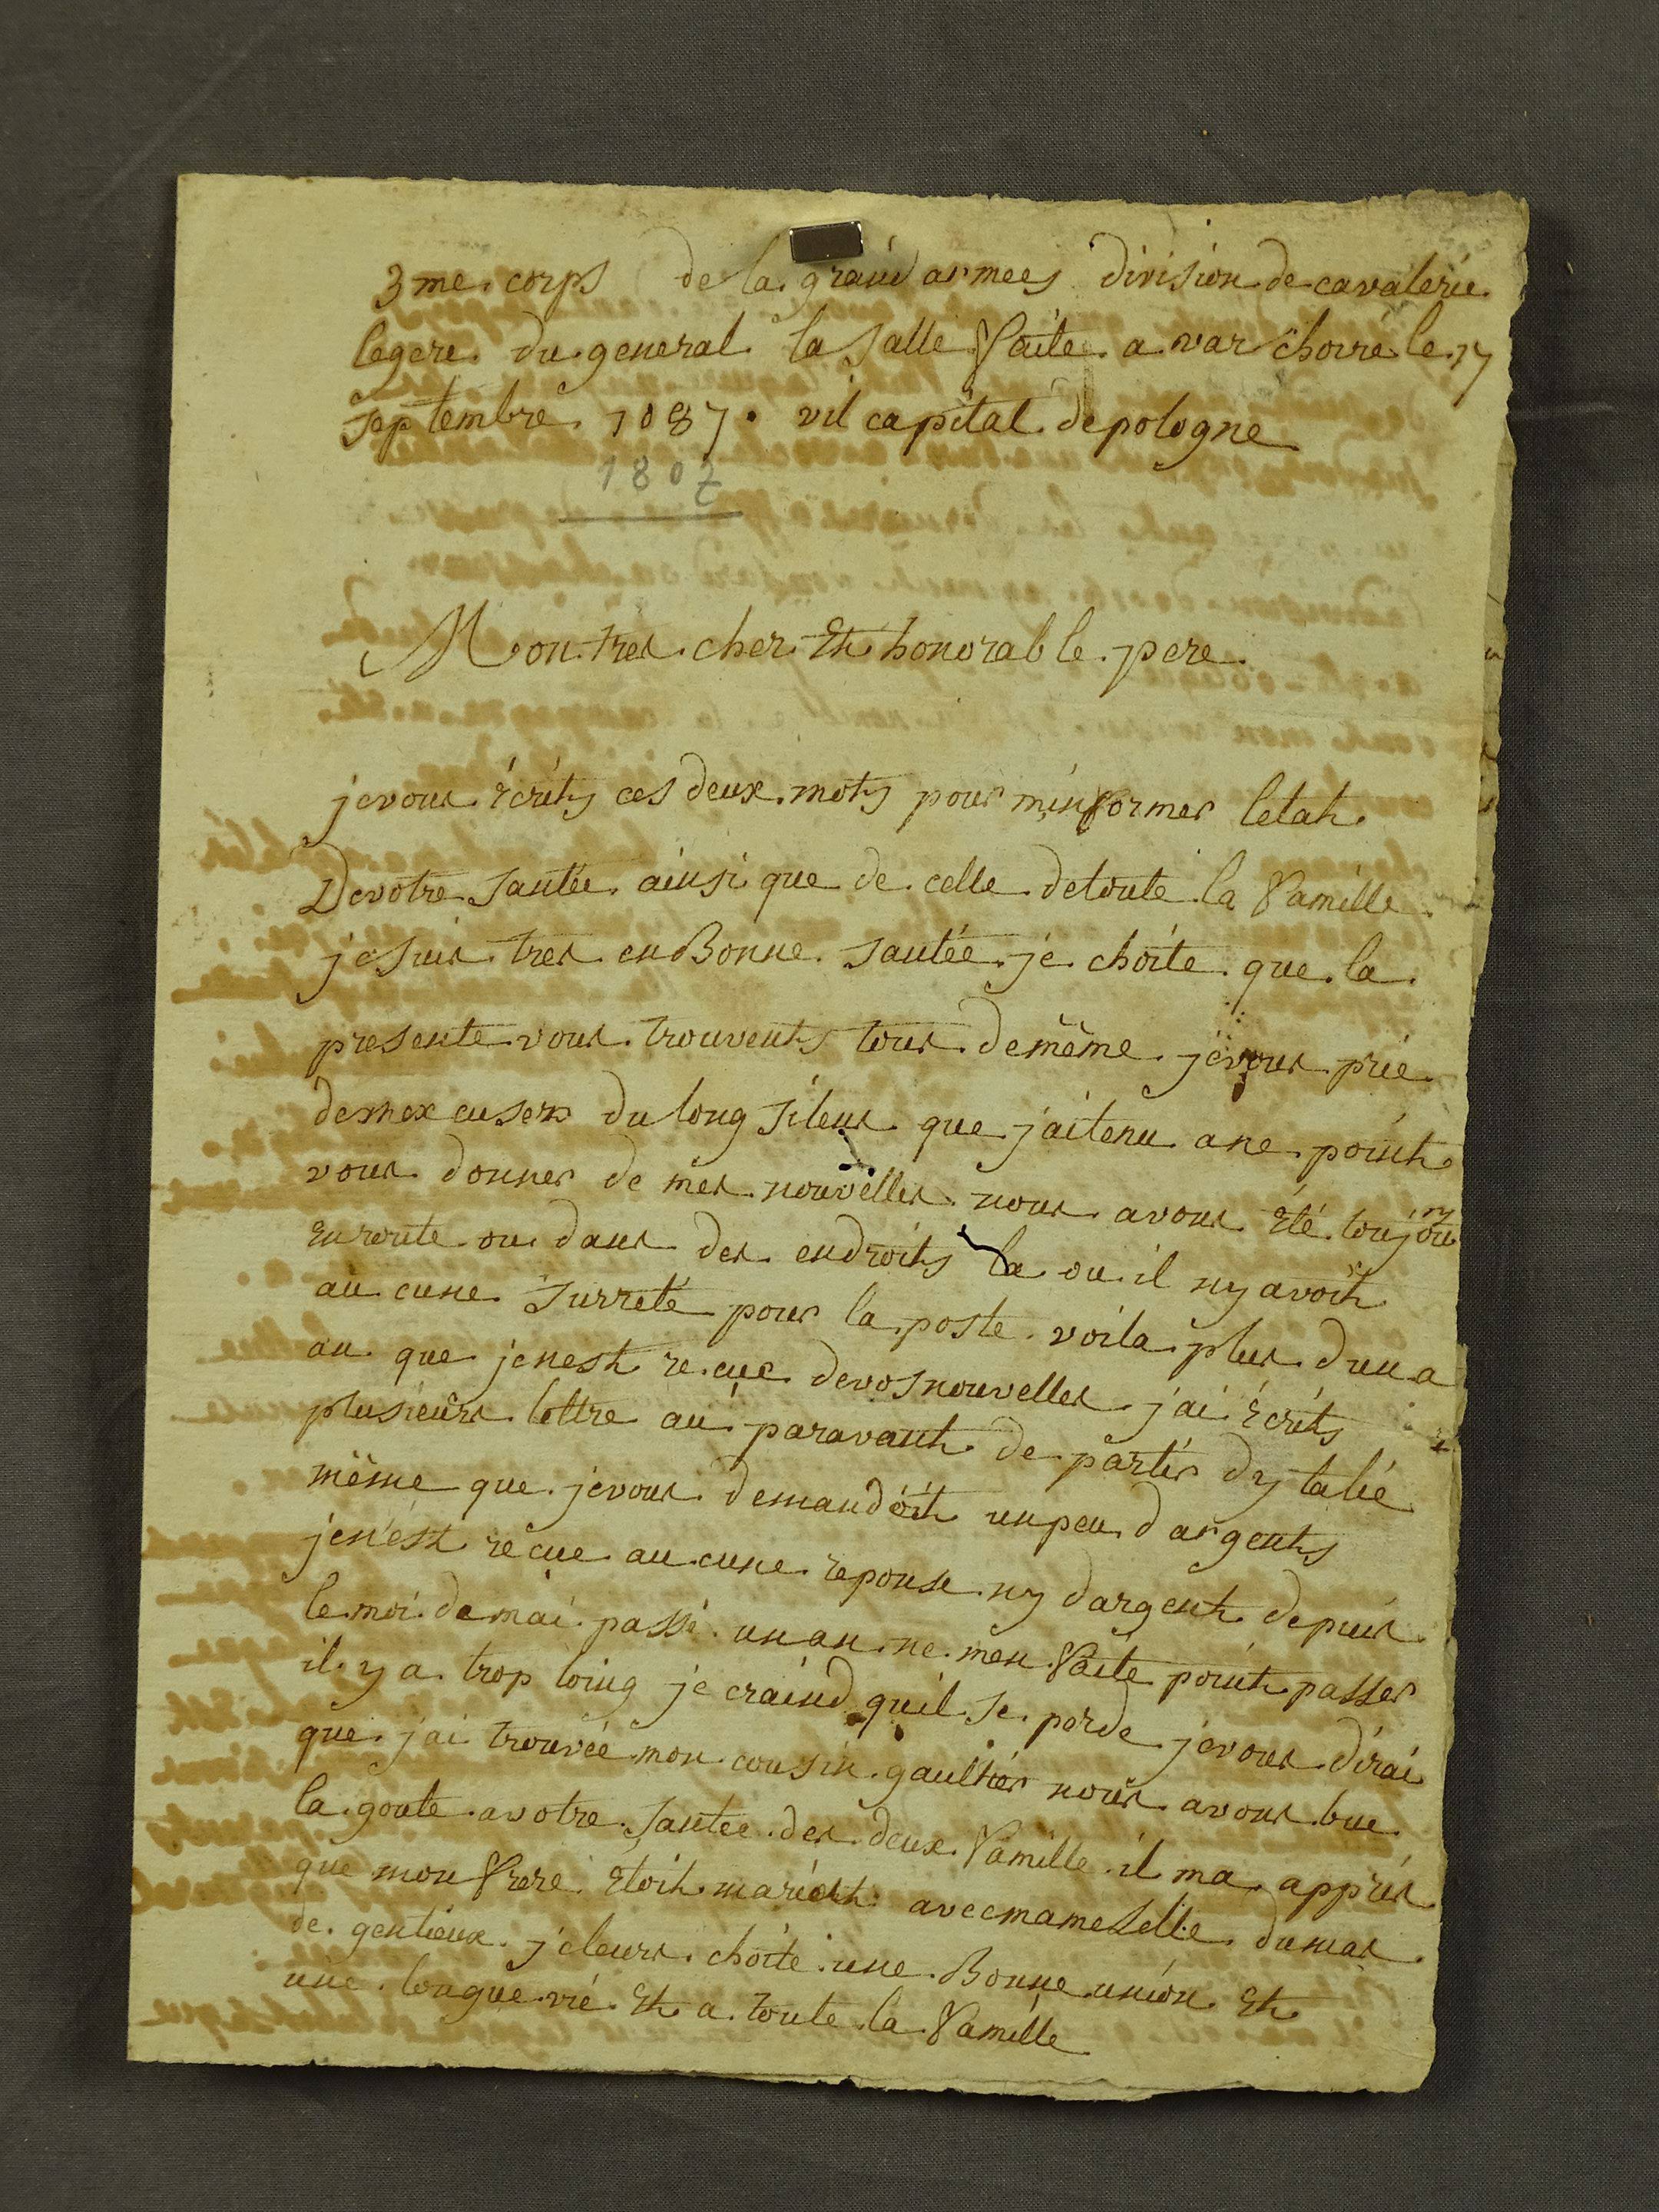 3me. corps de la. grand armees division de cavalerie
legere. du. general. la salle faite. a. var chovie. le. 17
septembre. 1087. vil capital. de pologne
1807
Mon. tres. cher. Et. honorable. pere.
je vous. Ecrits ces deux. mots pour m'informer letat.
De votre santée. ainsi que de. celle de toute. la famille.
je suis. tres. en Bonne. santée. je. choite. que. la.
presente vous. trouvents tous. de même. je vous. prie.
de mex cuser du long silens que j'ai tenu a ne. point
vous. donner de mes. nouvelles. nous avons Eté. toujou rs
En route ou dans des endroits la ou. il ny avoit
au cune. surreté pour la. poste. voila plus. d'un a
an que je nest re. cue. de vos nouvelles. j'ai Ecrits
plusieurs lettre au paravant de partir dy talie
même que. je vous. demandoit un peu. dargents
je n'est re cue au. cune. reponse. ny dargent. depuis.
le. moi. de mai passé. un an. ne. men. faite point passer
il. y a. trop loing je craind quil. se. perde je vous dirai
que. j'ai trouvée mon cousin. gaultier nous avons. bue.
la. goute. a votre. santee. des. deux famille. il ma. appris.
que mon frere Etoit mariest. avec mameselle dumas.
de. gentieux. je leurs. choite. une. Bonne union Et
une. longue vie. Et a. toute. la. famille